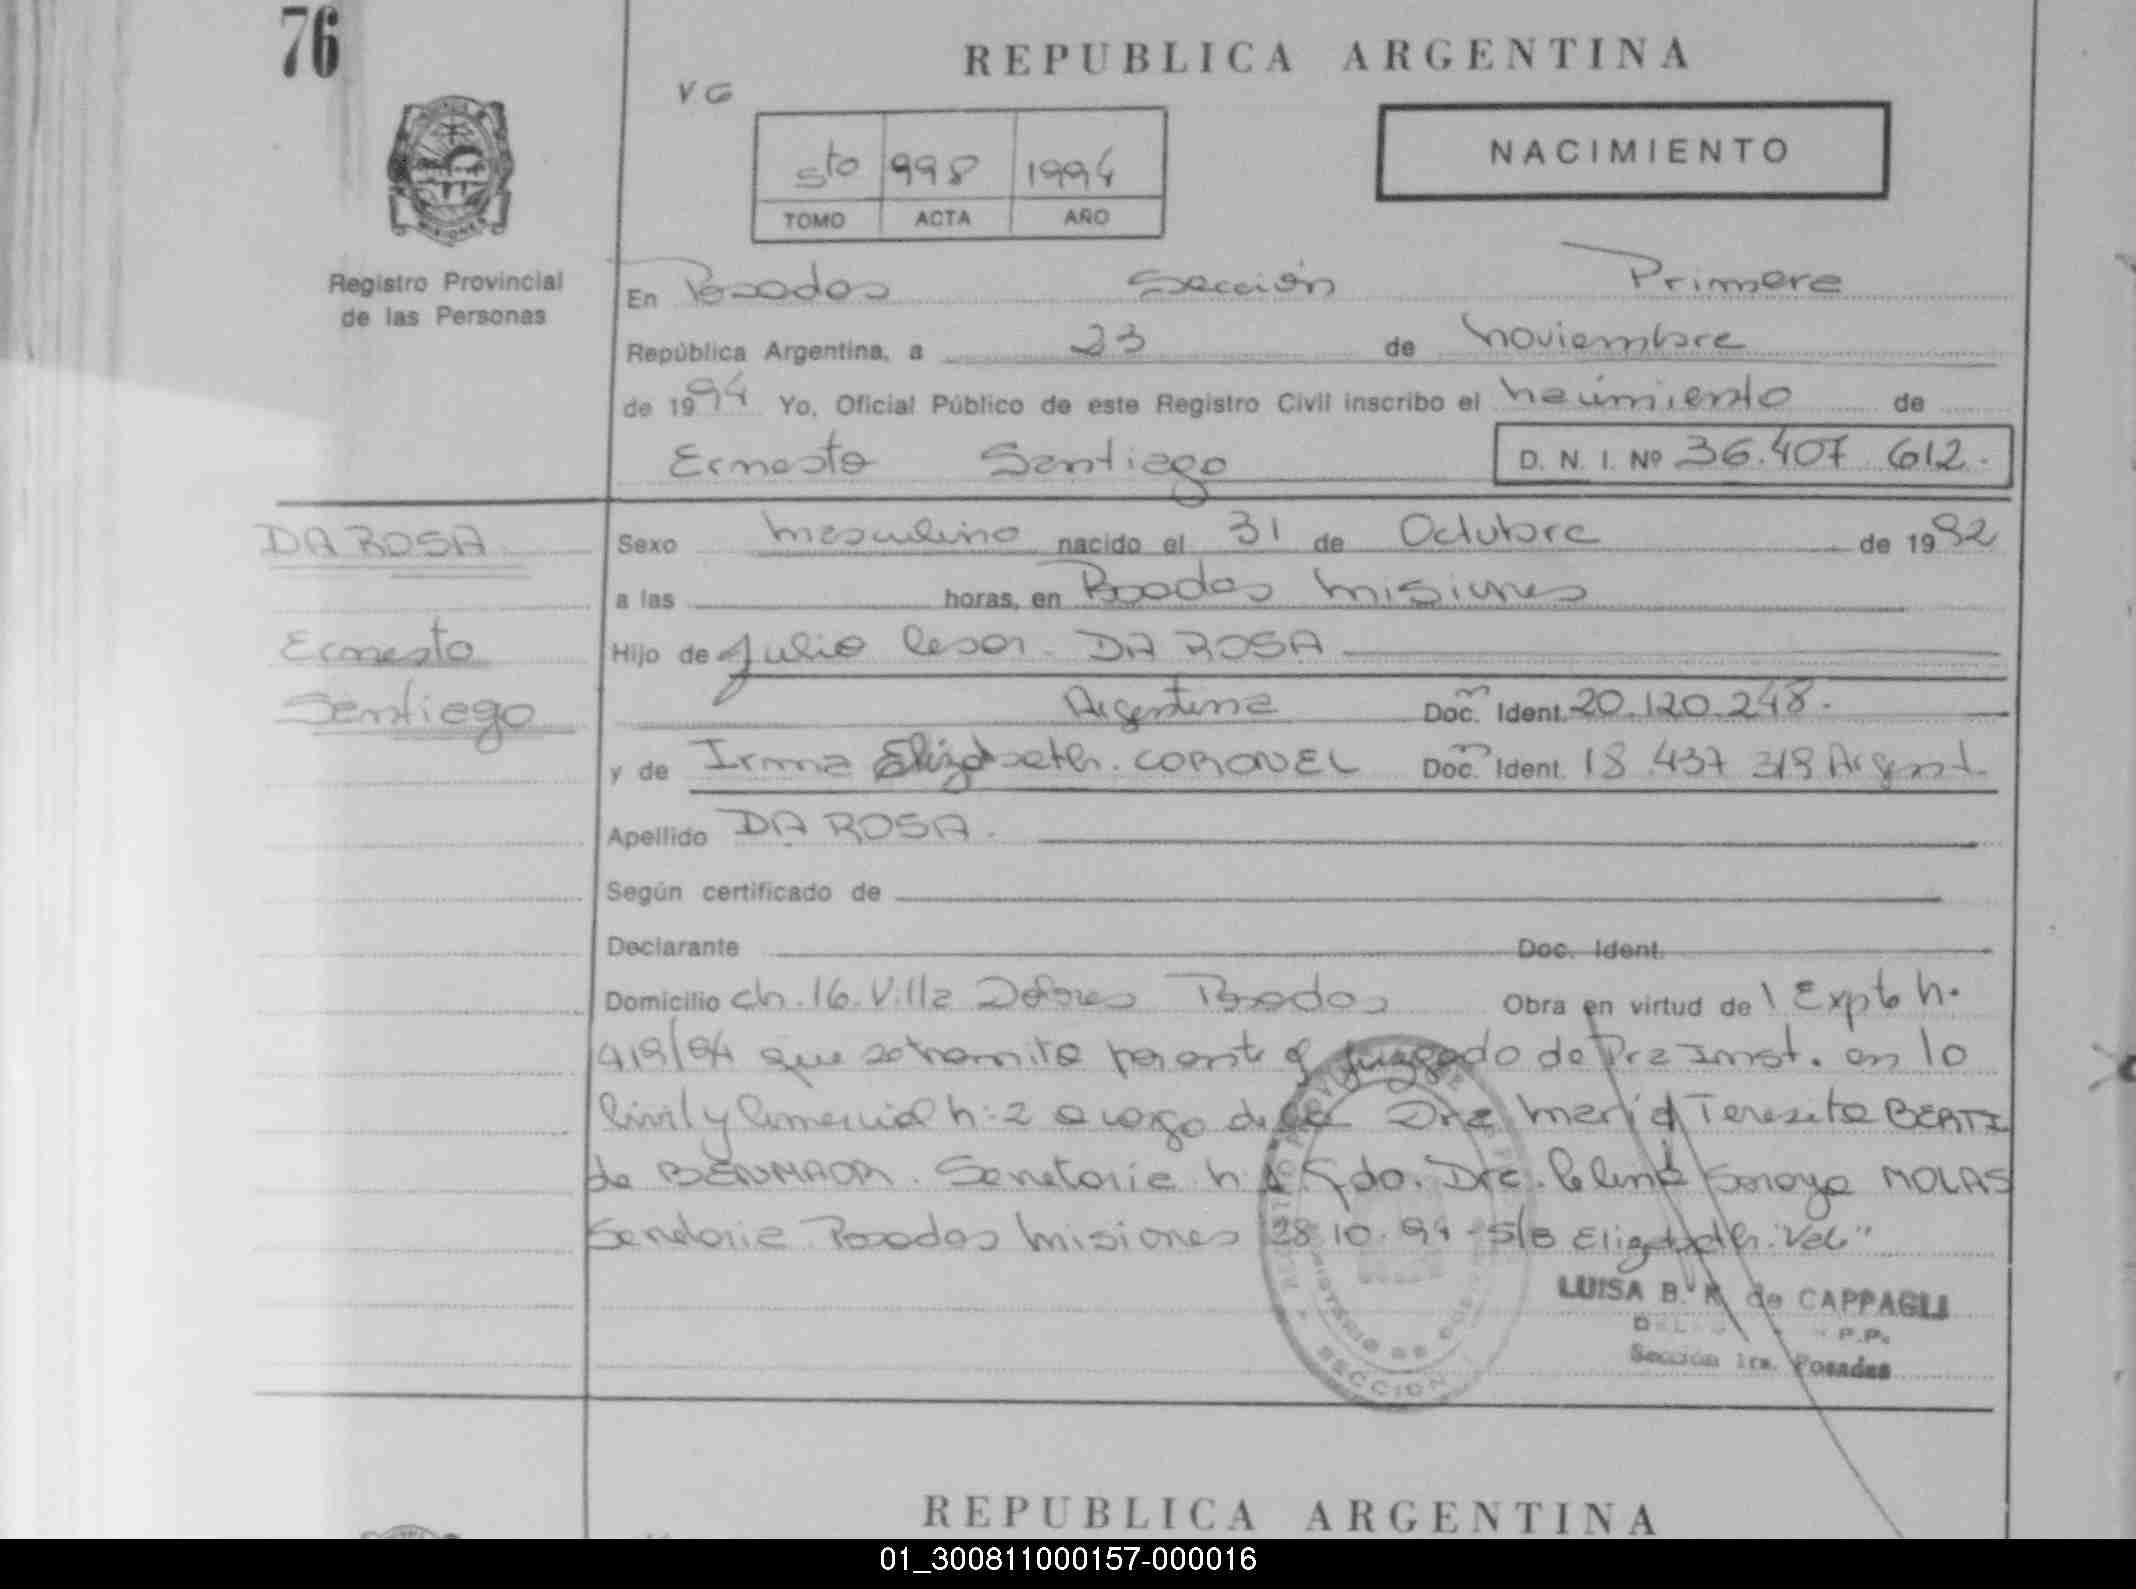 76
REPUBLICA ARGENTINA
VG
sto 998 1994
TOMO ACTA AÑO
NACIMIENTO
Registro Provincial
de las Personas
En Posadas Sección Primera
República Argentina, a 23 de noviembre
de 1994 Yo, Oficial Público de este Registro Civil inscribo el nacimiento de
Ernesto Santiago D. N. I. Nº 36.407.612.
DA ROSA
Ernesto
Santiago
Sexo masculino nacido el 31 de Octubre de 1992
a las horas, en Posadas Misiones
Hijo de Julio Cesar DA ROSA
Argentina Doc. Ident. 20.120.248.
y de Irma Elizabeth. CORONEL Doc. Ident. 18.437 319 Argent.
Apellido DA ROSA.
Según certificado de
Declarante Doc. Ident.
Domicilio ch. 16. Villa Dolores Posadas Obra en virtud de Expte n.
419/94 que se tramita por ante el Juzgado de Pra Inst. en lo
Civil y Comercial n: 2 a cargo de la Dra Maria Teresita
de Secretaria n Dra. MOLAS
Secretaria Posadas Misiones 28 10. 94 - S/B Elizabeth. "Vale"
LUISA B. de CAPPAGLI
P.P.
Sección 1ra. Posadas
SECCION
REPUBLICA ARGENTINA
01_300811000157-000016